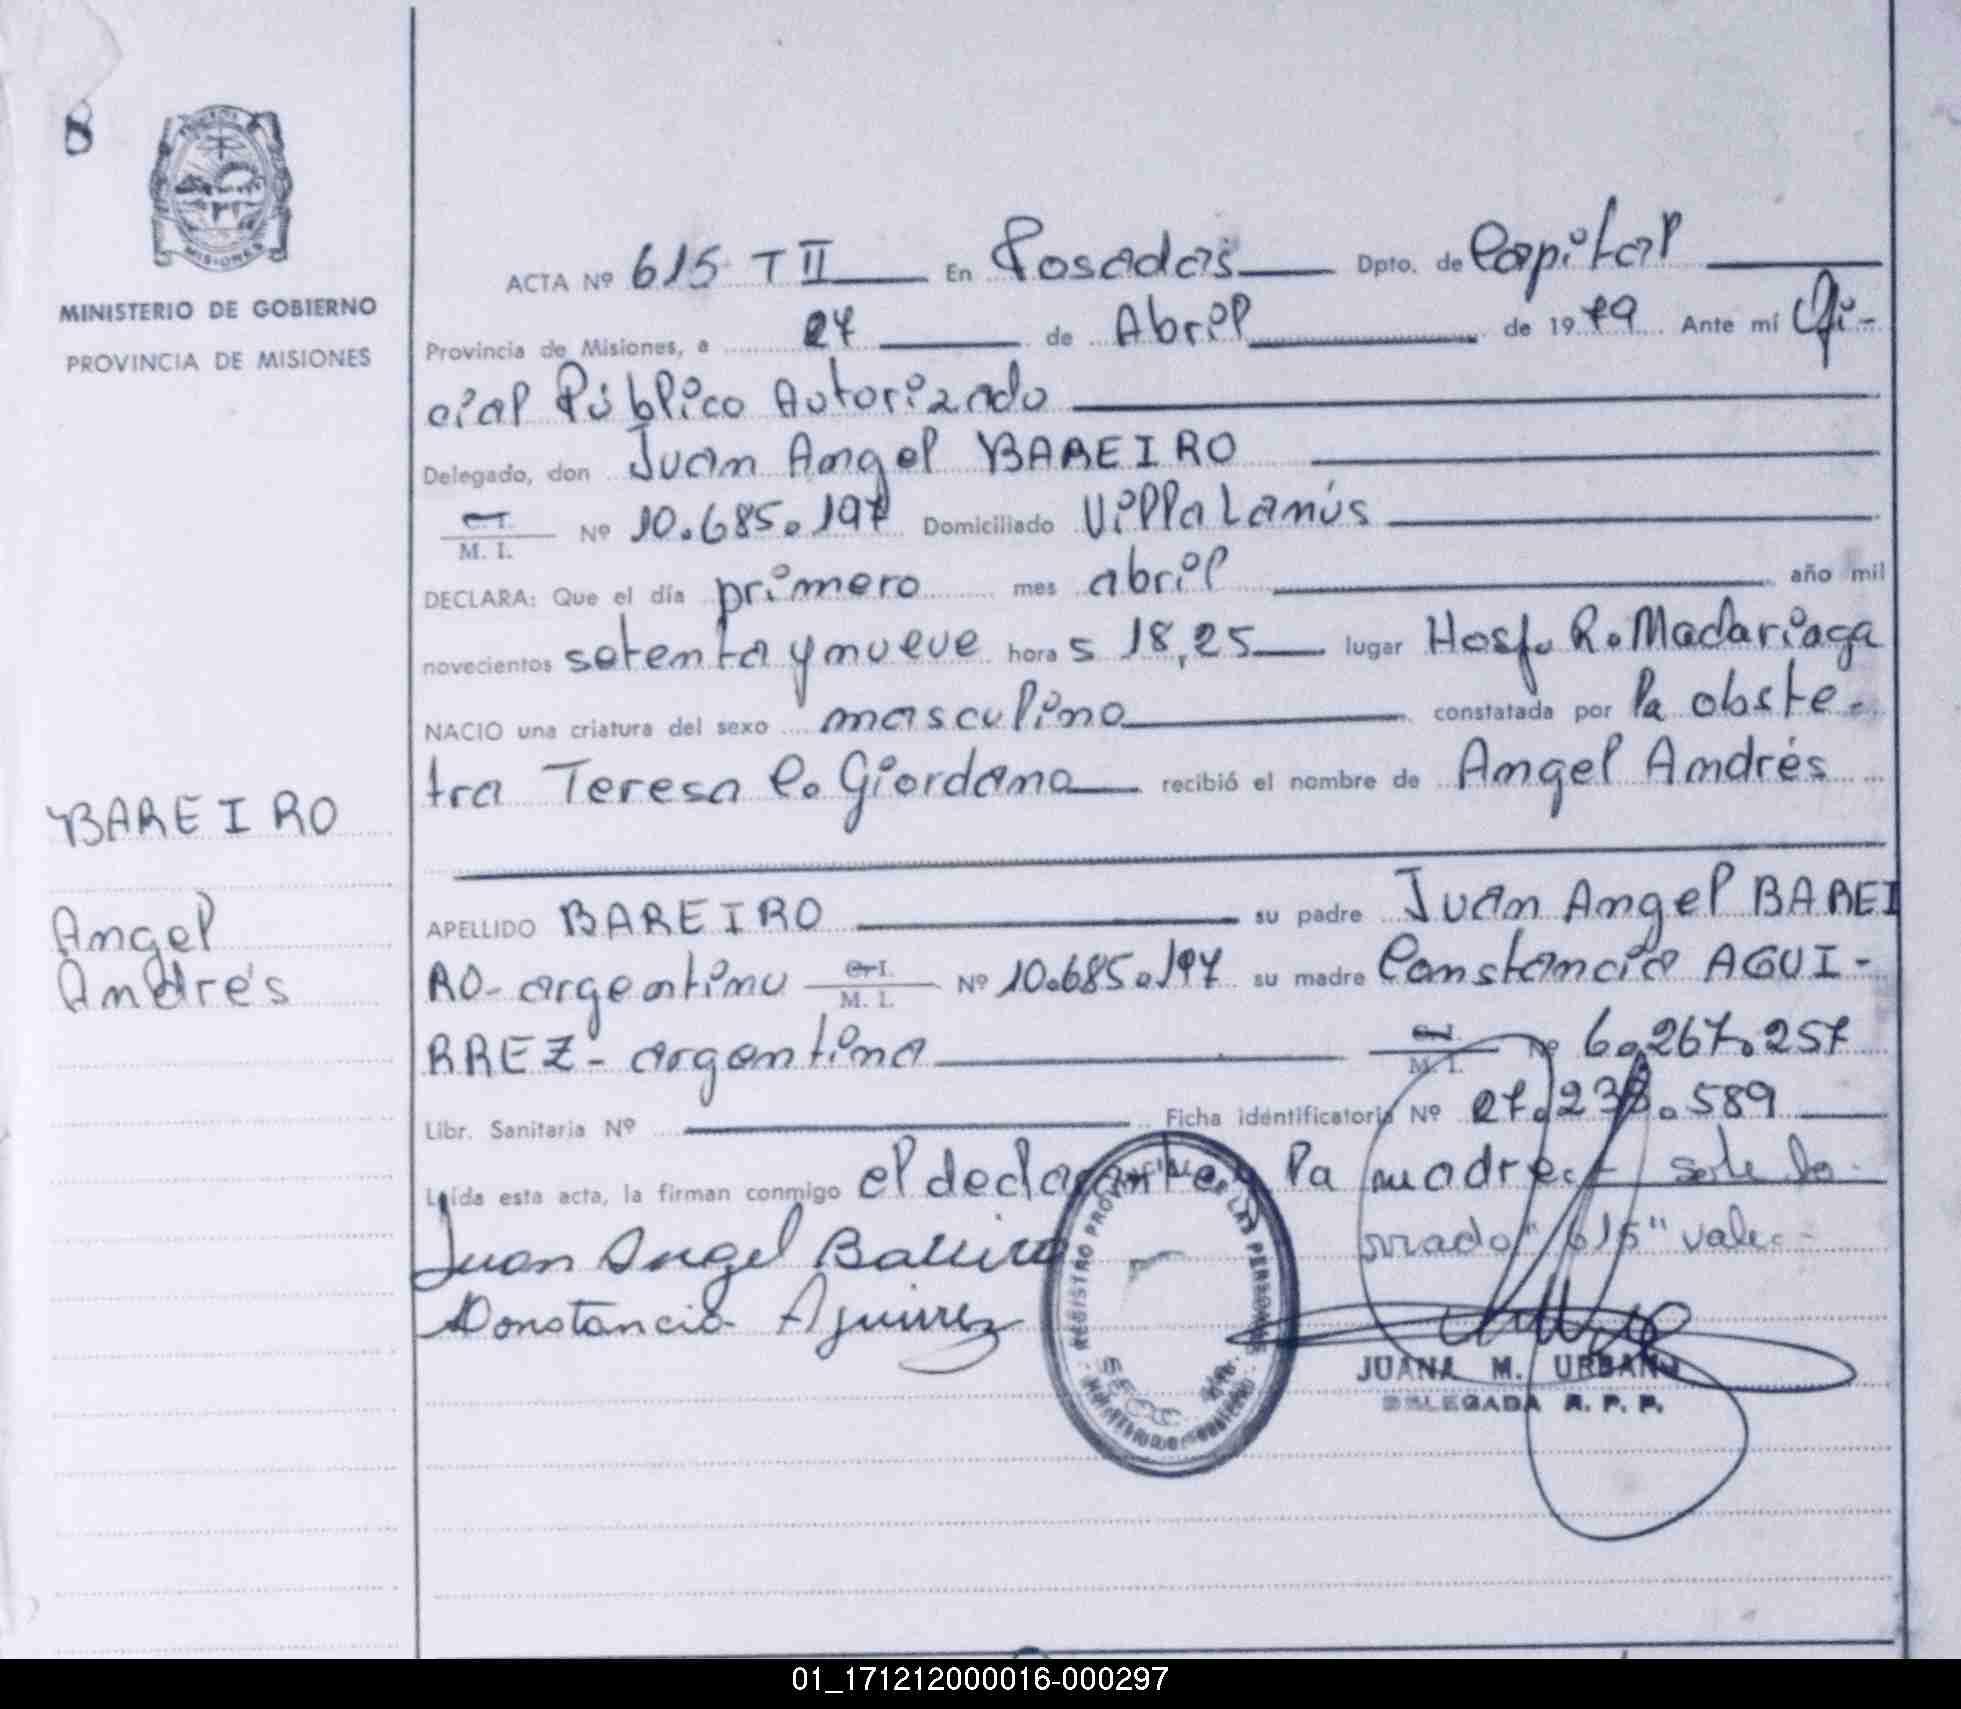 8
MISIONES
MINISTERIO DE GOBIERNO
PROVINCIA DE MISIONES
BAREIRO
Angel
Andrés
ACTA Nº 615 T II En Posadas Dpto. de Capital
Provincia de Misiones, a 27 de Abril de 1979 Ante mí Ofi-
cial Público Autorizado
Delegado, don Juan Angel BAREIRO
C. I.
M. I. Nº 10.685.197 Domiciliado Villa Lanús
DECLARA: Que el día primero mes abril año mil
novecientos setenta y nueve hora s 18,25 lugar Hosp. R. Madariaga
NACIO una criatura del sexo masculino constatada por la obste-
tra Teresa C. Giordano recibió el nombre de Angel Andrés
APELLIDO BAREIRO su padre Juan Angel BAREI
RO- argentino C. I. M. I. Nº 10.685.197 su madre Constancia AGUI-
RREZ- argentina C. I. M. I. Nº 6.267.257
Libr. Sanitaria Nº Ficha identificatoria Nº 27.238.589
Leída esta acta, la firman conmigo el declarante y la madre.- sobre bo-
rrado "615" vale.-
Juan Angel Bareiro
Constancia Aguirrez
REGISTRO PROVINCIAL DE LAS PERSONAS
SECC
MINISTERIO DE GOBIERNO
JUANA M. URBANO
DELEGADA R. P. P.
01_171212000016-000297